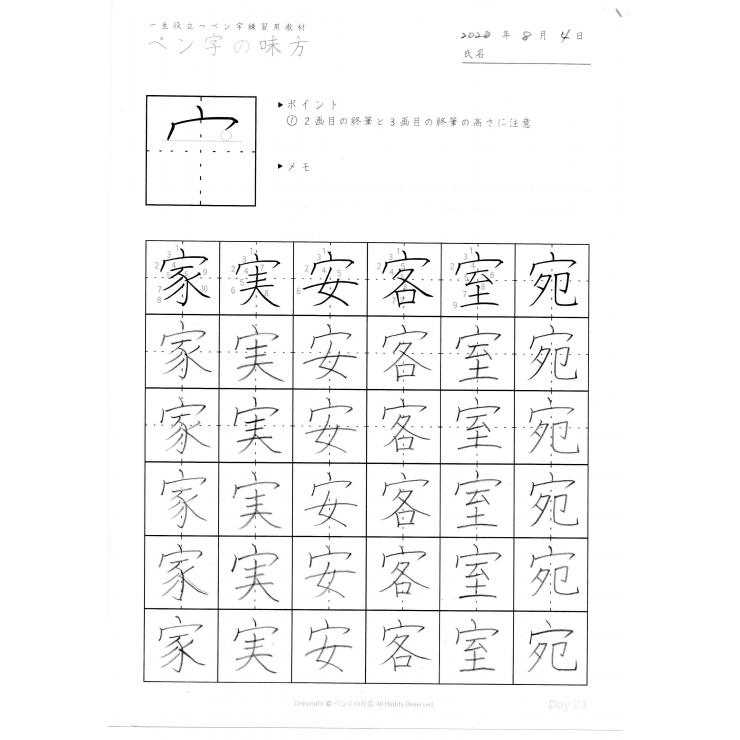 一生役立つペン字練習用教材
ペン字の味方
2020年8月4日
氏名
▶ポイント
① 2画目の終筆と3画目の終筆の高さに注意
▶メモ
宀
家 実 安 客 室 宛
家 実 安 客 室 宛
家 実 安 客 室 宛
家 実 安 客 室 宛
家 実 安 客 室 宛
家 実 安 客 室 宛
Copyright © ペン字の味方 All Rights Reserved.
Day 23